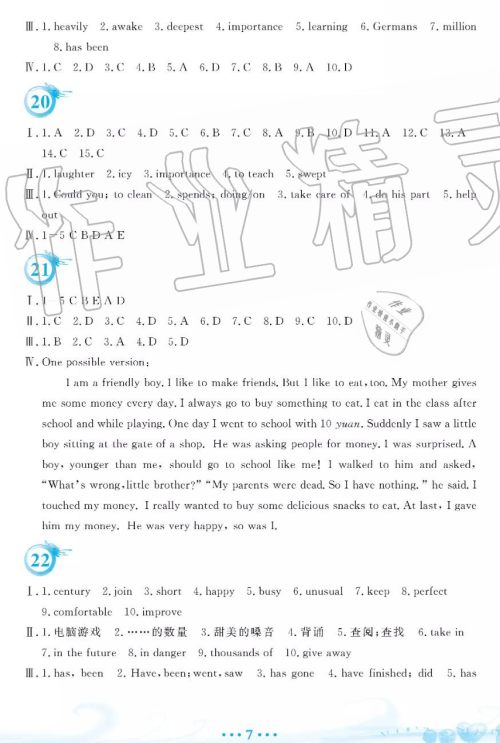 Ⅲ. 1. heavily 2. awake 3. deepest 4. importance 5. learning 6. Germans 7. million
8. has been
Ⅳ. 1. C 2. D 3. C 4. B 5. A 6. D 7. C 8. B 9. A 10. D
20
Ⅰ. 1. A 2. D 3. C 4. D 5. C 6. B 7. C 8. A 9. B 10. D 11. A 12. C 13. A
14. C 15. C
Ⅱ. 1. laughter 2. icy 3. importance 4. to teach 5. swept
Ⅲ. 1. Could you; to clean 2. spends; doing/on 3. take care of 4. do his part 5. help
out
Ⅳ. 1-5 C B D A E
21
Ⅰ. 1-5 C B E A D
Ⅱ. 1. C 2. D 3. A 4. D 5. C 6. B 7. D 8. C 9. C 10. D
Ⅲ. 1. B 2. C 3. A 4. D 5. D
Ⅳ. One possible version:
I am a friendly boy. I like to make friends. But I like to eat, too. My mother gives
me some money every day. I always go to buy something to eat. I eat in the class after
school and while playing. One day I went to school with 10 yuan. Suddenly I saw a little
boy sitting at the gate of a shop. He was asking people for money. I was surprised. A
boy, younger than me, should go to school like me! I walked to him and asked,
“What's wrong, little brother?” “My parents were dead. So I have nothing.” he said. I
touched my money. I really wanted to buy some delicious snacks to eat. At last, I gave
him my money. He was very happy, so was I.
22
Ⅰ. 1. century 2. join 3. short 4. happy 5. busy 6. unusual 7. keep 8. perfect
9. comfortable 10. improve
Ⅱ. 1. 电脑游戏 2. ……的数量 3. 甜美的嗓音 4. 背诵 5. 查阅;查找 6. take in
7. in the future 8. in danger 9. thousands of 10. give away
Ⅲ. 1. has, been 2. Have, been; went, saw 3. has gone 4. have finished; did 5. has
7
作业精灵
作业
精灵